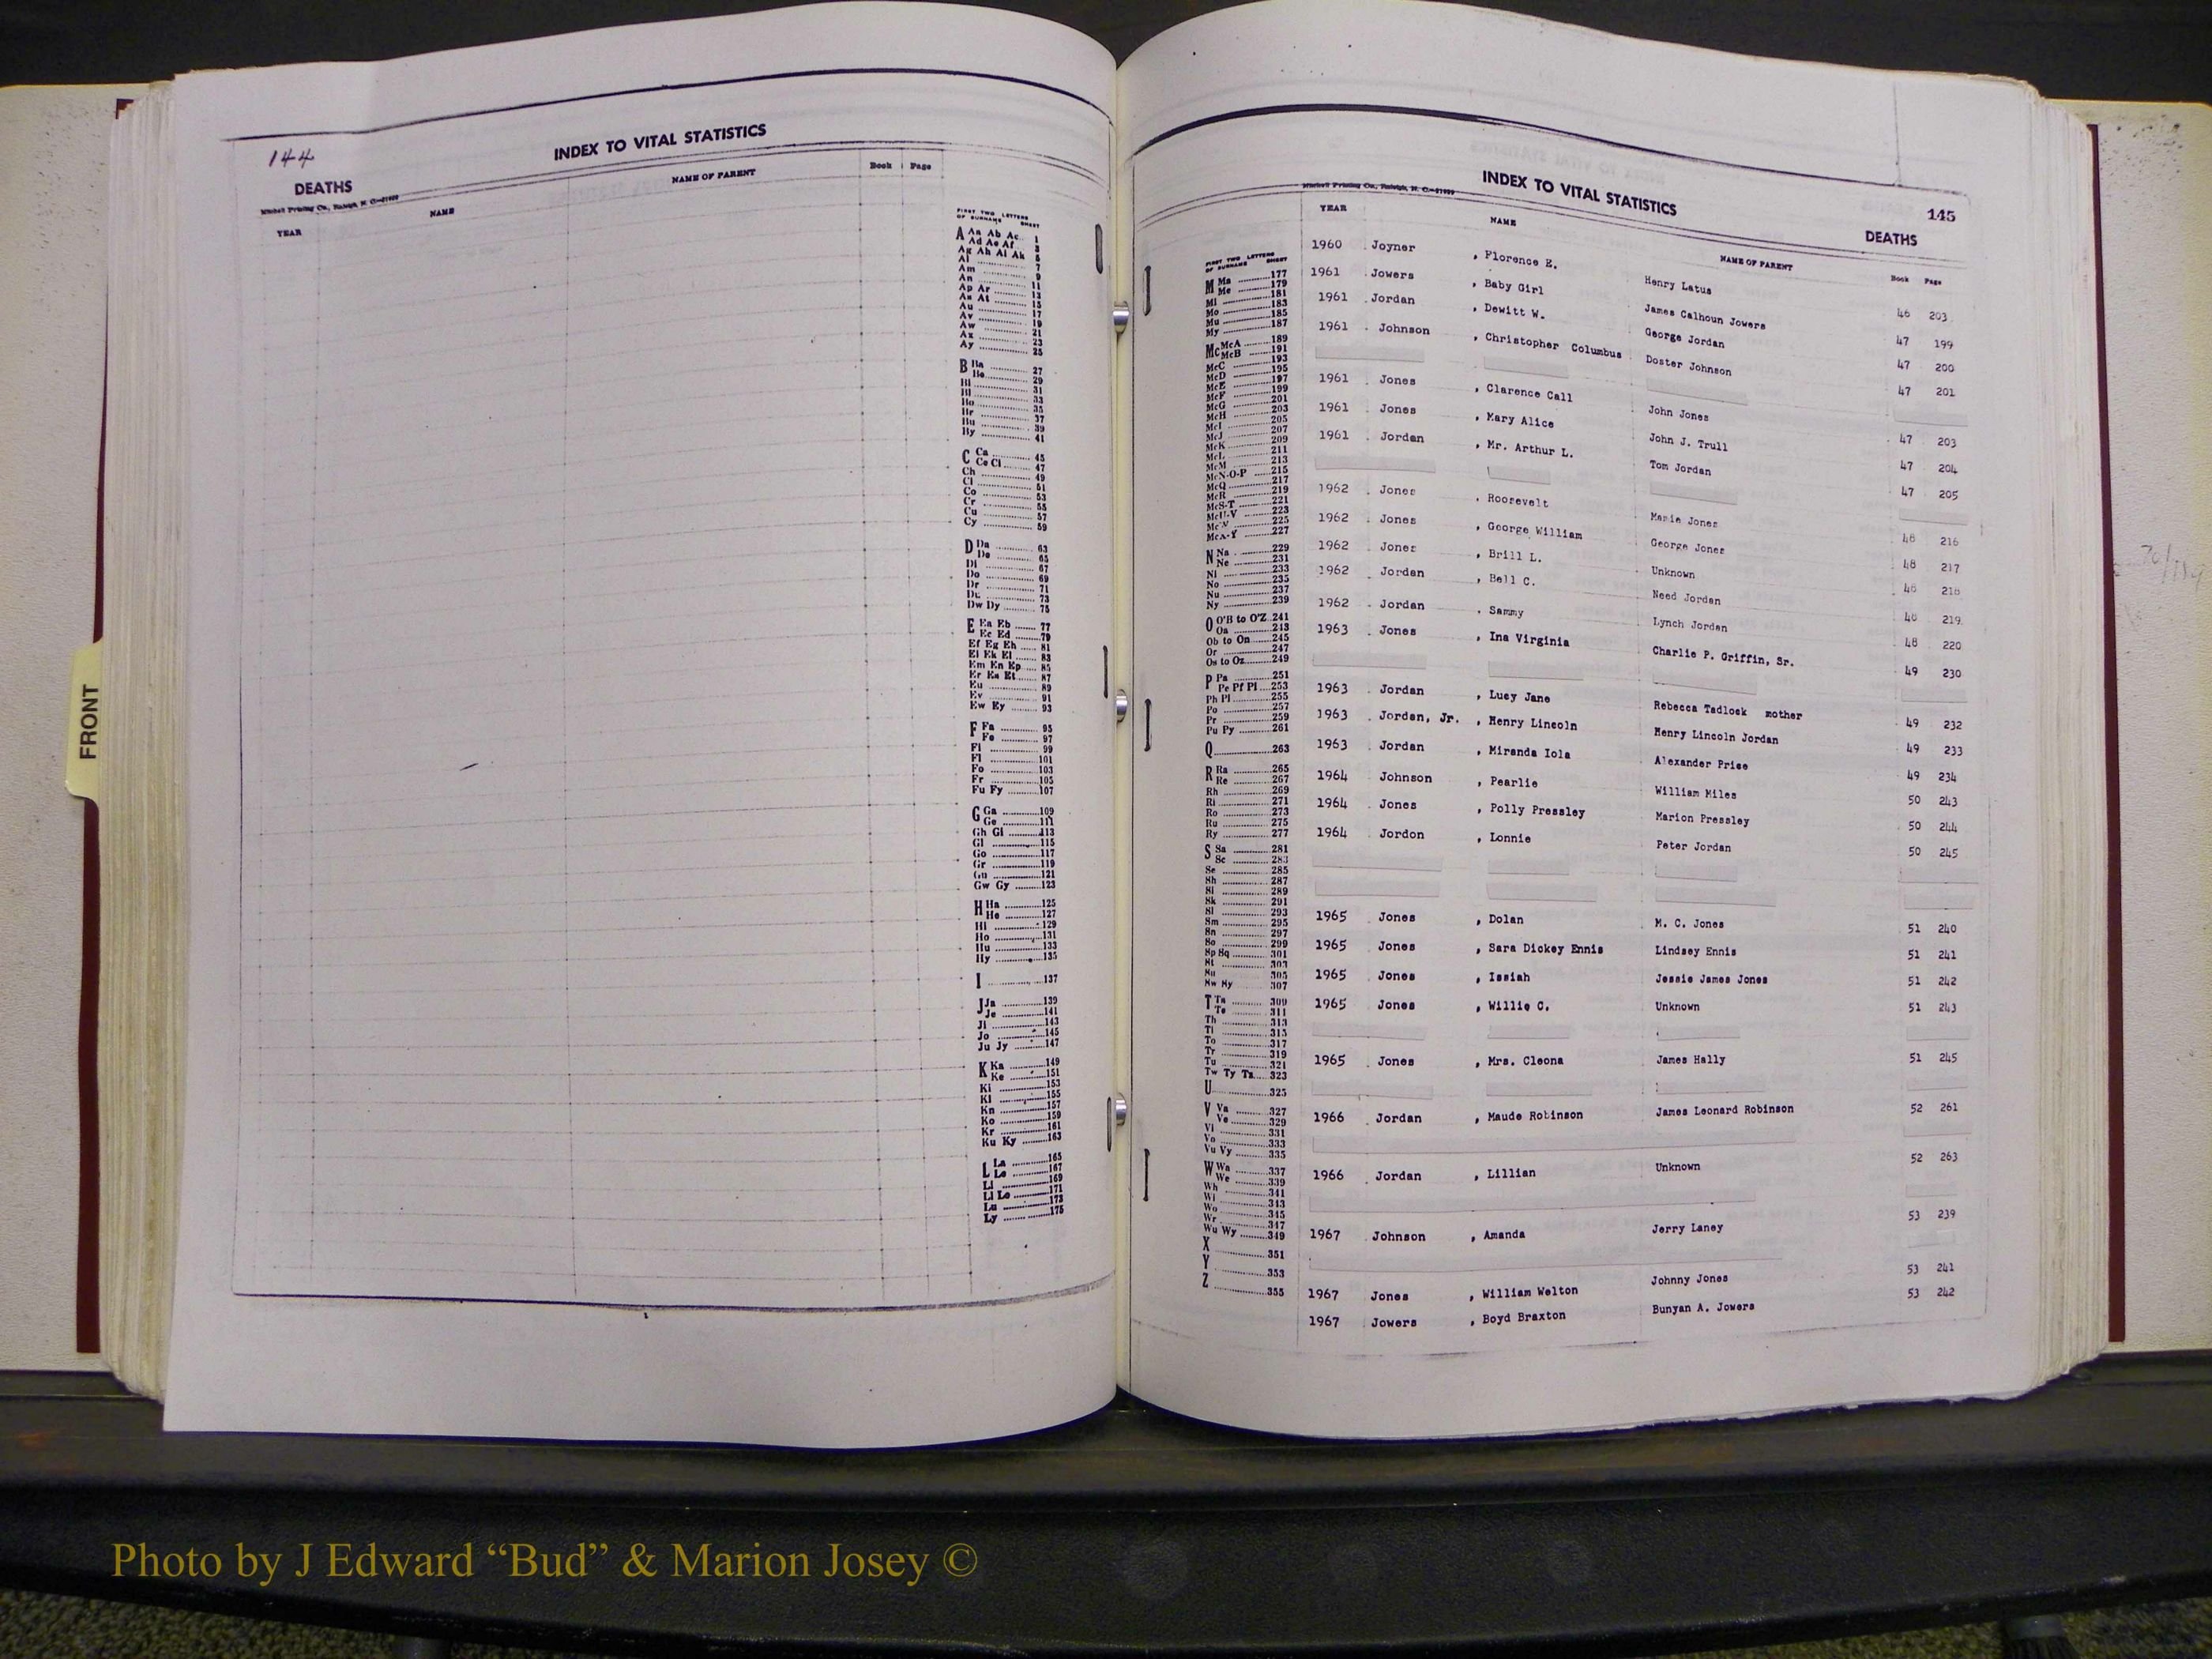 144
INDEX TO VITAL STATISTICS
DEATHS
Mitchell Printing Co., Raleigh, N. C.
YEAR NAME NAME OF PARENT Book Page
FIRST TWO LETTERS
OF SURNAME SHEET
A Aa Ab Ac 1
Ad Ae Af 3
Ag Ah Ai Ak 5
Al 7
Am 9
An 11
Ap Ar 13
As At 15
Au 17
Av 19
Aw 21
Ax 23
Ay 25
B Ba 27
Be 29
Bi 31
Bl 33
Bo 35
Br 37
Bu 39
By 41
C Ca 45
Ce Ci 47
Ch 49
Cl 51
Co 53
Cr 55
Cu 57
Cy 59
D Da 63
De 65
Di 67
Do 69
Dr 71
Du 73
Dw Dy 75
E Ea Eb 77
Ec Ed 79
Ef Eg Eh 81
Ei Ek El 83
Em En Ep 85
Er Es Et 87
Eu 89
Ev 91
Ew Ey 93
F Fa 95
Fe 97
Fi 99
Fl 101
Fo 103
Fr 105
Fu Fy 107
G Ga 109
Ge 111
Gh Gi 113
Gl 115
Go 117
Gr 119
Gu 121
Gw Gy 123
H Ha 125
He 127
Hi 129
Ho 131
Hu 133
Hy 135
I 137
J Ja 139
Je 141
Ji 143
Jo 145
Ju Jy 147
K Ka 149
Ke 151
Ki 153
Kl 155
Kn 157
Ko 159
Kr 161
Ku Ky 163
L La 165
Le 167
Li 169
Ll Lo 171
Lu 173
Ly 175
FRONT
INDEX TO VITAL STATISTICS
145
DEATHS
Mitchell Printing Co., Raleigh, N. C.
YEAR NAME NAME OF PARENT Book Page
FIRST TWO LETTERS
OF SURNAME SHEET
M Ma 177
Me 179
Mi 181
Mo 183
Mu 185
My 187
Mc McA 189
McB 191
McC 193
McD 195
McE 197
McF 199
McG 201
McH 203
McI 205
McJ 207
McK 209
McL 211
McM 213
McN-O-P 215
McQ 217
McR 219
McS-T 221
McU-V 223
McW 225
McX-Y 227
N Na 229
Ne 231
Ni 233
No 235
Nu 237
Ny 239
O O'B to O'Z 241
Oa 243
Ob to On 245
Or 247
Os to Oz 249
P Pa 251
Pe Pf Pi 253
Ph Pl 255
Po 257
Pr 259
Pu Py 261
Q 263
R Ra 265
Re 267
Rh 269
Ri 271
Ro 273
Ru 275
Ry 277
S Sa 281
Sc 283
Se 285
Sh 287
Si 289
Sk 291
Sl 293
Sm 295
Sn 297
So 299
Sp Sq 301
St 303
Su 305
Sw Sy 307
T Ta 309
Te 311
Th 313
Ti 315
To 317
Tr 319
Tu 321
Tw Ty Tz 323
U 325
V Va 327
Ve 329
Vi 331
Vo 333
Vu Vy 335
W Wa 337
We 339
Wh 341
Wi 343
Wo 345
Wr 347
Wu Wy 349
X 351
Y 353
Z 355
1960 Joyner , Florence E. Henry Latus 46 203
1961 Jowers , Baby Girl James Calhoun Jowers 47 199
1961 Jordan , Dewitt W. George Jordan 47 200
1961 Johnson , Christopher Columbus Doster Johnson 47 201
1961 Jones , Clarence Call John Jones 47 203
1961 Jones , Mary Alice John J. Trull 47 204
1961 Jordan , Mr. Arthur L. Tom Jordan 47 205
1962 Jones , Roosevelt Marie Jones 48 216
1962 Jones , George William George Jones 48 217
1962 Jones , Brill L. Unknown 48 218
1962 Jordan , Bell C. Need Jordan 48 219
1962 Jordan , Sammy Lynch Jordan 48 220
1963 Jones , Ina Virginia Charlie P. Griffin, Sr. 49 230
1963 Jordan , Lucy Jane Rebecca Tadlock mother 49 232
1963 Jordan, Jr. , Henry Lincoln Henry Lincoln Jordan 49 233
1963 Jordan , Miranda Iola Alexander Price 49 234
1964 Johnson , Pearlie William Miles 50 243
1964 Jones , Polly Pressley Marion Pressley 50 244
1964 Jordon , Lonnie Peter Jordan 50 245
1965 Jones , Dolan M. C. Jones 51 240
1965 Jones , Sara Dickey Ennis Lindsey Ennis 51 241
1965 Jones , Issiah Jessie James Jones 51 242
1965 Jones , Willie C. Unknown 51 243
1965 Jones , Mrs. Cleona James Hally 51 245
1966 Jordan , Maude Robinson James Leonard Robinson 52 261
1966 Jordan , Lillian Unknown 52 263
1967 Johnson , Amanda Jerry Laney 53 239
1967 Jones , William Welton Johnny Jones 53 241
1967 Jowers , Boyd Braxton Bunyan A. Jowers 53 242
Photo by J Edward “Bud” & Marion Josey ©